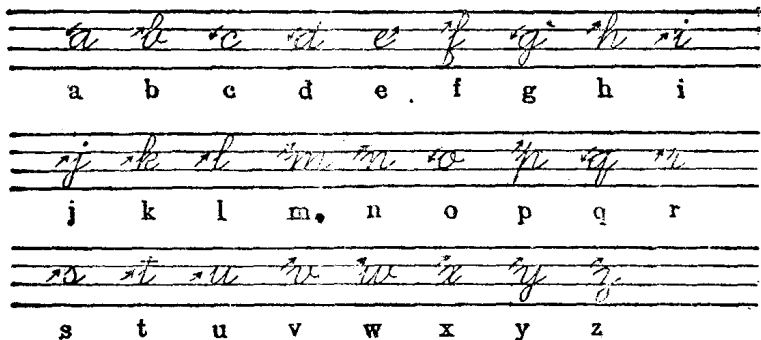 a b c d e f g h i
a b c d e . f g h i
j k l m n o p q r
j k l m. n o p q r
s t u v w x y z
s t u v w x y z